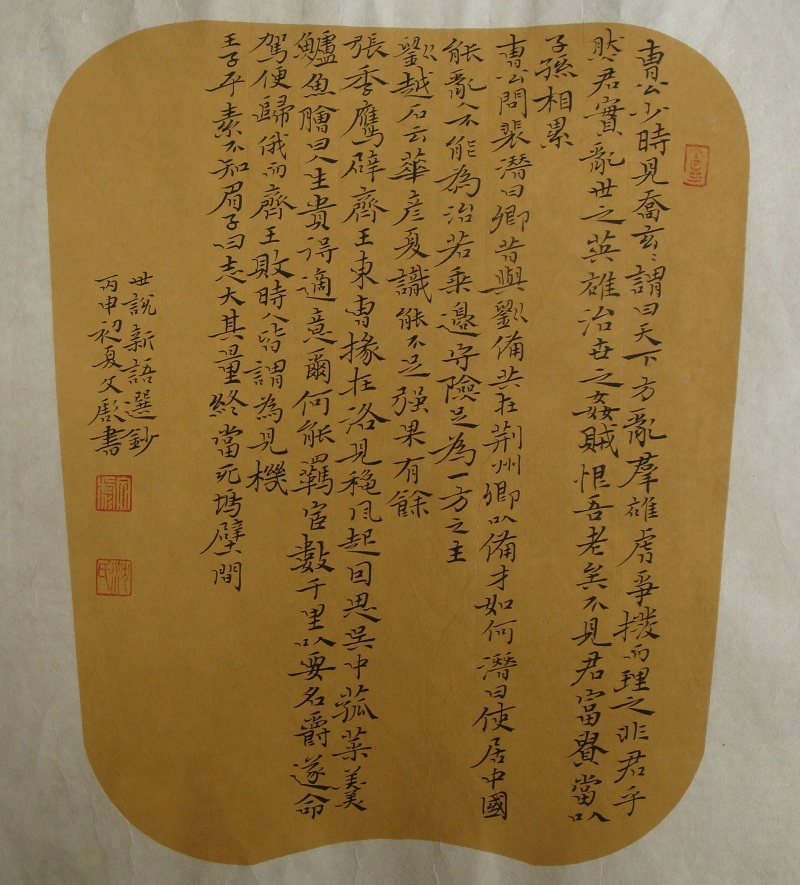 曹公少時見喬玄〻謂曰天下方亂羣雄虎爭撥而理之非君乎
然君實亂世之英雄治世之姦賊恨吾老矣不見君富貴當以
子孫相累
曹公問裴潛曰卿昔與劉備共在荆州卿以備才如何潛曰使居中國
能亂人不能為治若乘邊守險足為一方之主
劉越石云華彦夏識能不足强果有餘
張季鷹辟齊王東曹掾在洛見秋風起因思吳中菰菜羹
鱸魚膾曰人生貴得適意爾何能羈宦數千里以要名爵遂命
駕便歸俄而齊王敗時人皆謂為見機
王子平素不知眉子曰志大其量終當死塢壁間
世說新語選鈔
丙申初夏文彪書